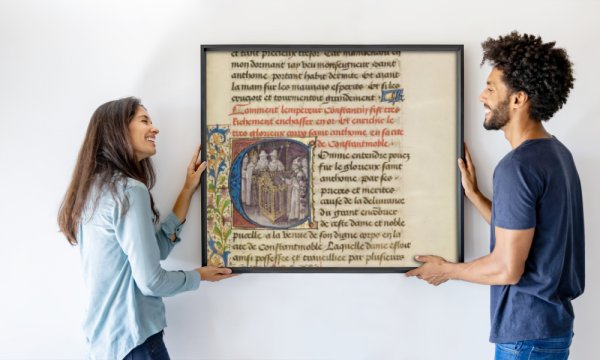 et tant precieux tresor. Car maintenant en
mon dormant iay veu monseigneur saint
anthoine portant habit dermite. Et aiant
la main sur les mauuais esperits. Et si les
crucioit et tourmentoit grandement.
Comment lempereur Constantin fist tres
richement enchasser en or. Et enrichir le
tres glorieux corps saint anthoine en sa cite
de Constantinoble.
Omme entendre pouez
fut le glorieux saint
anthoine par ses
prieres et merites
cause de la deliurance
du grant encombrier
de ceste dame et noble
pucelle a la venue de son digne corps en la
cite de Constantinoble Laquelle dame estoit
ainsi possessee et trauaillee par plusieurs